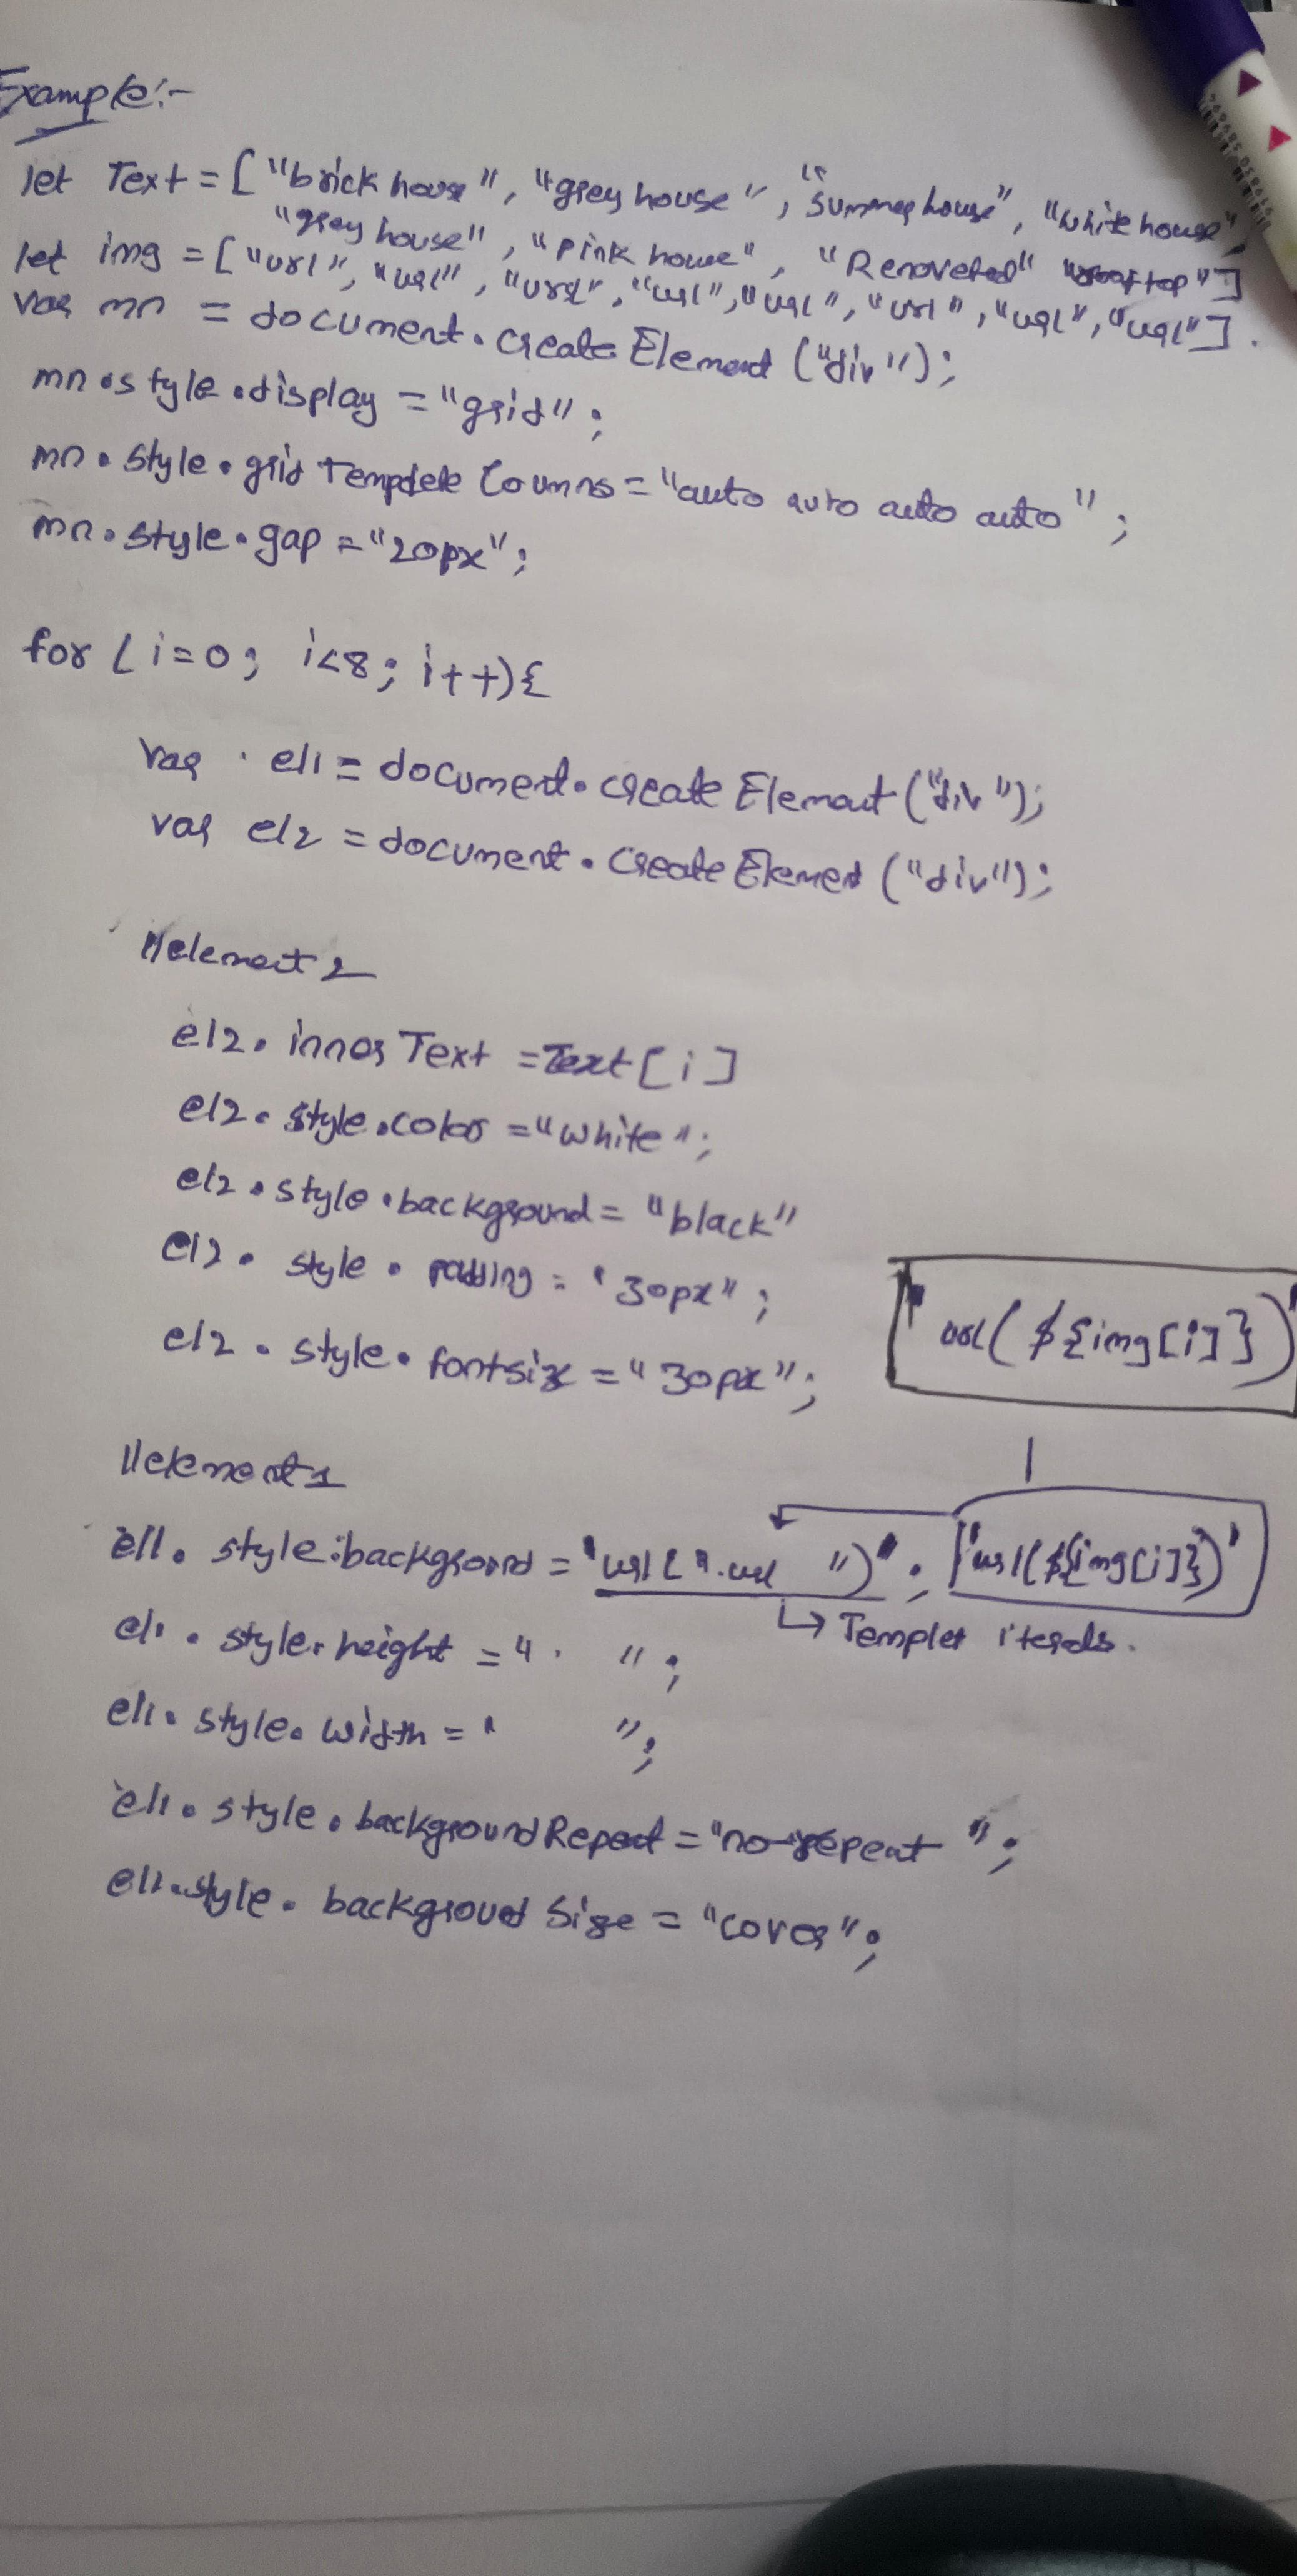 Example:-
let Text = ["brick house", "grey house", "Summer house", "White house",
"grey house", "Pink house", "Renoveted" "rooftop"]
let img = ["url", "url", "url", "url", "url", "url", "url", "url"].
var mn = document.createElement ("div");
mn.style.display = "grid";
mn.style.grid Templete Coumns = "auto auto auto auto";
mn.style.gap = "20px";
for (i=0; i<8; i++){
var el1 = document.create Element ("div");
var el2 = document.create Element ("div");
//element 2
el2. inner Text = Text [i]
el2.style.color = "white";
el2.style.background = "black"
el2. style. padding = "30px";
el2. style. fontsize = "30px";
url( ${img[i]})
//element 1
el1. style.background = "url(".url ")"; 'url(${img[i]})'
↳ Templet iterals.
el1. style. height = " ";
el1. style. width = " ";
el1. style. backgroundRepeat = "no-repeat";
el1.style. background Size = "cover";